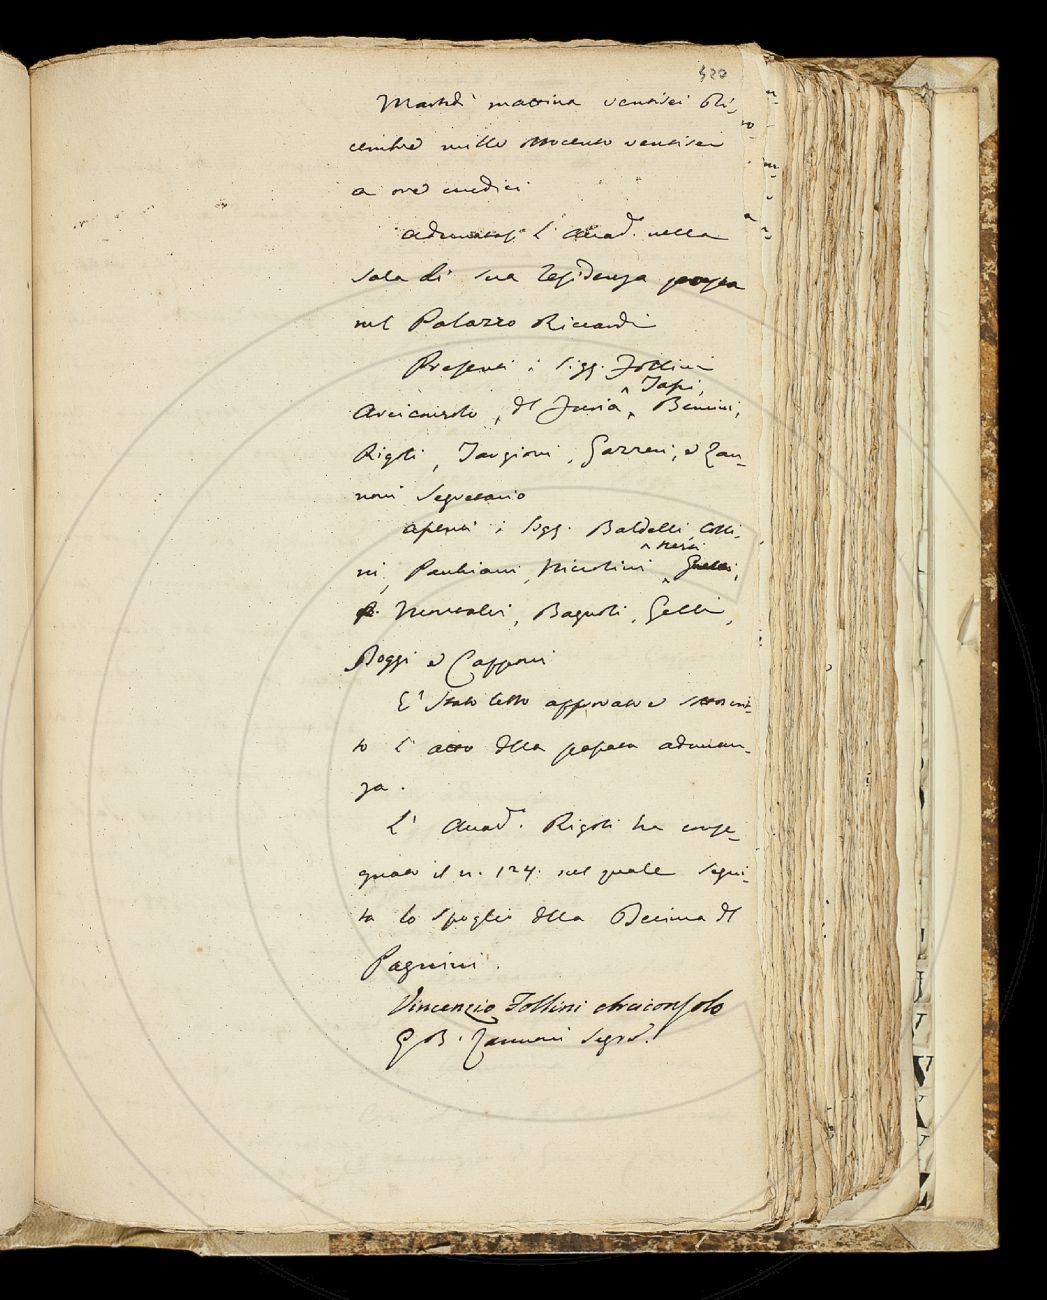 520
Martedì mattina ventisei Di-
cembre mille ottocento ventisei
a ore undici
Adunatasi l' Accad. nella
Sala di sua residenza posta
nel Palazzo Riccardi
Presenti i Sigg. Follini
Tassi,
Arciconsolo, del Furia, Bencini,
Rigoli, Targioni, Gazzeri, e Zan-
noni Segretario
Assenti i Sigg. Baldelli, Colli-
Nesti
ni, Panbiani, Niccolini,
Moncalvi, Bagnoli, Gelli,
Poggi e Capponi
E' stato letto approvato e sottoscrit-
to l' atto della passata adunan-
za.
L' Accad. Rigoli ha conse-
gnato il n. 124. nel quale segui-
ta lo spoglio della Decima del
Pagnini.
Vincenzio Follini Arciconsolo
G B. Zannoni Segret.